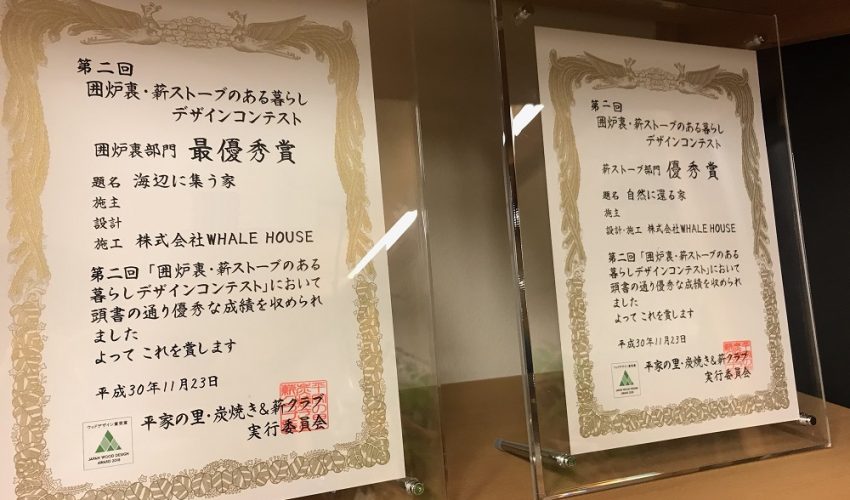 第二回
囲炉裏・薪ストーブのある暮らし
デザインコンテスト
囲炉裏部門 最優秀賞
題名 海辺に集う家
施主
設計
施工 株式会社WHALE HOUSE
第二回「囲炉裏・薪ストーブのある
暮らしデザインコンテスト」において
頭書の通り優秀な成績を収められ
ました
よって これを賞します
平成30年11月23日
平家の里・炭焼き&薪クラブ
実行委員会
ウッドデザイン賞受賞
JAPAN WOOD DESIGN
AWARD 2018
第二回
囲炉裏・薪ストーブのある暮らし
デザインコンテスト
薪ストーブ部門 優秀賞
題名 自然に還る家
施主
設計・施工 株式会社WHALE HOUSE
第二回「囲炉裏・薪ストーブのある
暮らしデザインコンテスト」において
頭書の通り優秀な成績を収められ
ました
よって これを賞します
平成30年11月23日
平家の里・炭焼き&薪クラブ
実行委員会